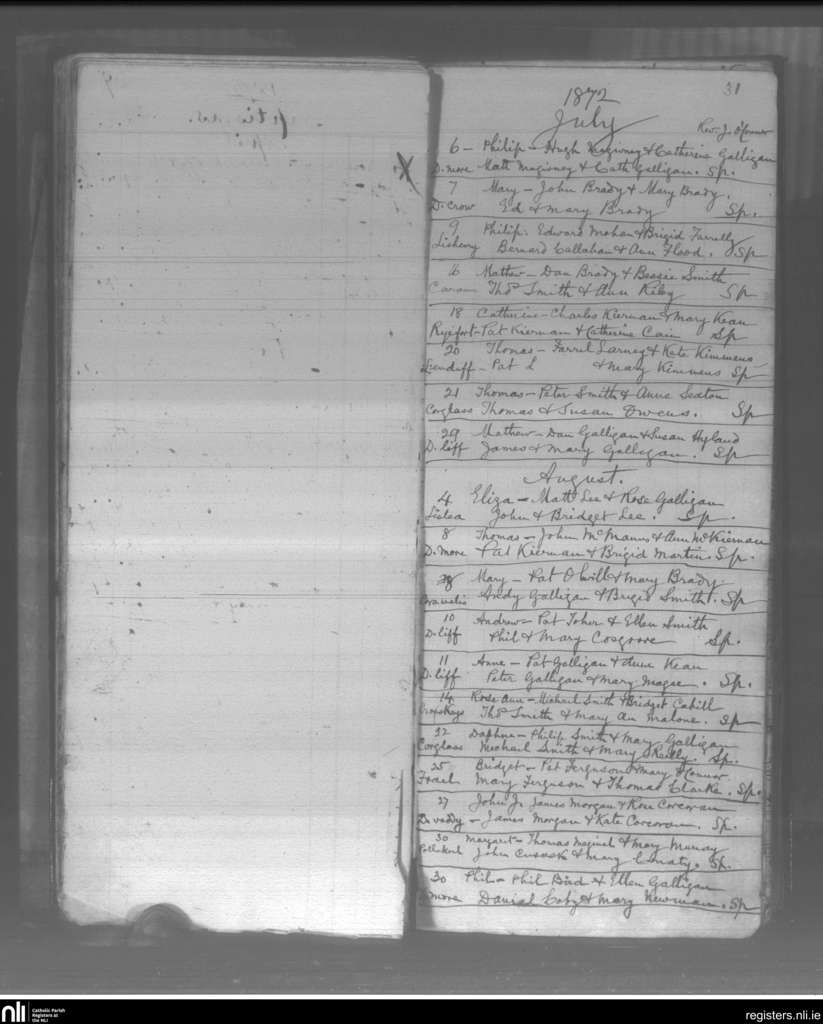 31
1872
July
Rev. J. O'Connor
6 - Philip - Hugh Magivney & Catherine Galligan
D. more Matt Magivney & Cath Galligan. Sp.
7 Mary - John Brady & Mary Brady.
D. Crow Ed & Mary Brady Sp.
9 Philip: Edward Mohan & Brigid Farrelly
Bernard Callahan & Ann Flood. Sp
16 Mathew - Dan Brady & Bessie Smith
Thos Smith & Ann Sp
18 Catherine - Charles Kiernan & Mary Kean
Ryefort - Pat Kiernan & Catherine Cain Sp
20 Thomas - Farrel Larney & Kate Kimmens
Pat L & Mary Kimmens Sp
21 Thomas - Peter Smith & Anne Sexton
Corglass Thomas & Susan Owens. Sp
29 Mathew - Dan Galligan & Susan Hyland
D. liff James & Mary Galligan. Sp
August.
4 Eliza - Matt Lee & Rose Galligan
John & Bridget Lee. Sp.
8 Thomas - John McManus & Ann McKiernan
D. More Pat Kiernan & Brigid Martin. Sp.
Mary - Pat & Mary Brady
Andy Galligan & Brigid Smith. Sp
10 Andrew - Pat & Ellen Smith
D. liff Phil & Mary Cosgrove Sp.
11 Anne - Pat Galligan & Anne Kean
D. liff Peter Galligan & Mary Magee. Sp.
14 Rose Ann - Michael Smith & Bridget Cahill
Crosskeys Thos Smith & Mary An Malone. Sp
Daphne - Philip Smith & Mary Galligan
Corglass Michael Smith & Mary Reilly. Sp.
25 Bridget - Pat Ferguson & Mary O'Connor
Mary Ferguson & Thomas Clarke. Sp.
27 John J. James Morgan & Rose Corcoran
James Morgan & Kate Corcoran. Sp.
30 Margaret - Thomas & Mary Murray
John Cusack & Mary Sp.
30 Phil - Phil & Ellen Galligan
D. more Danial & Mary Newman. Sp
nli
Catholic Parish
Registers at
the NLI
registers.nli.ie